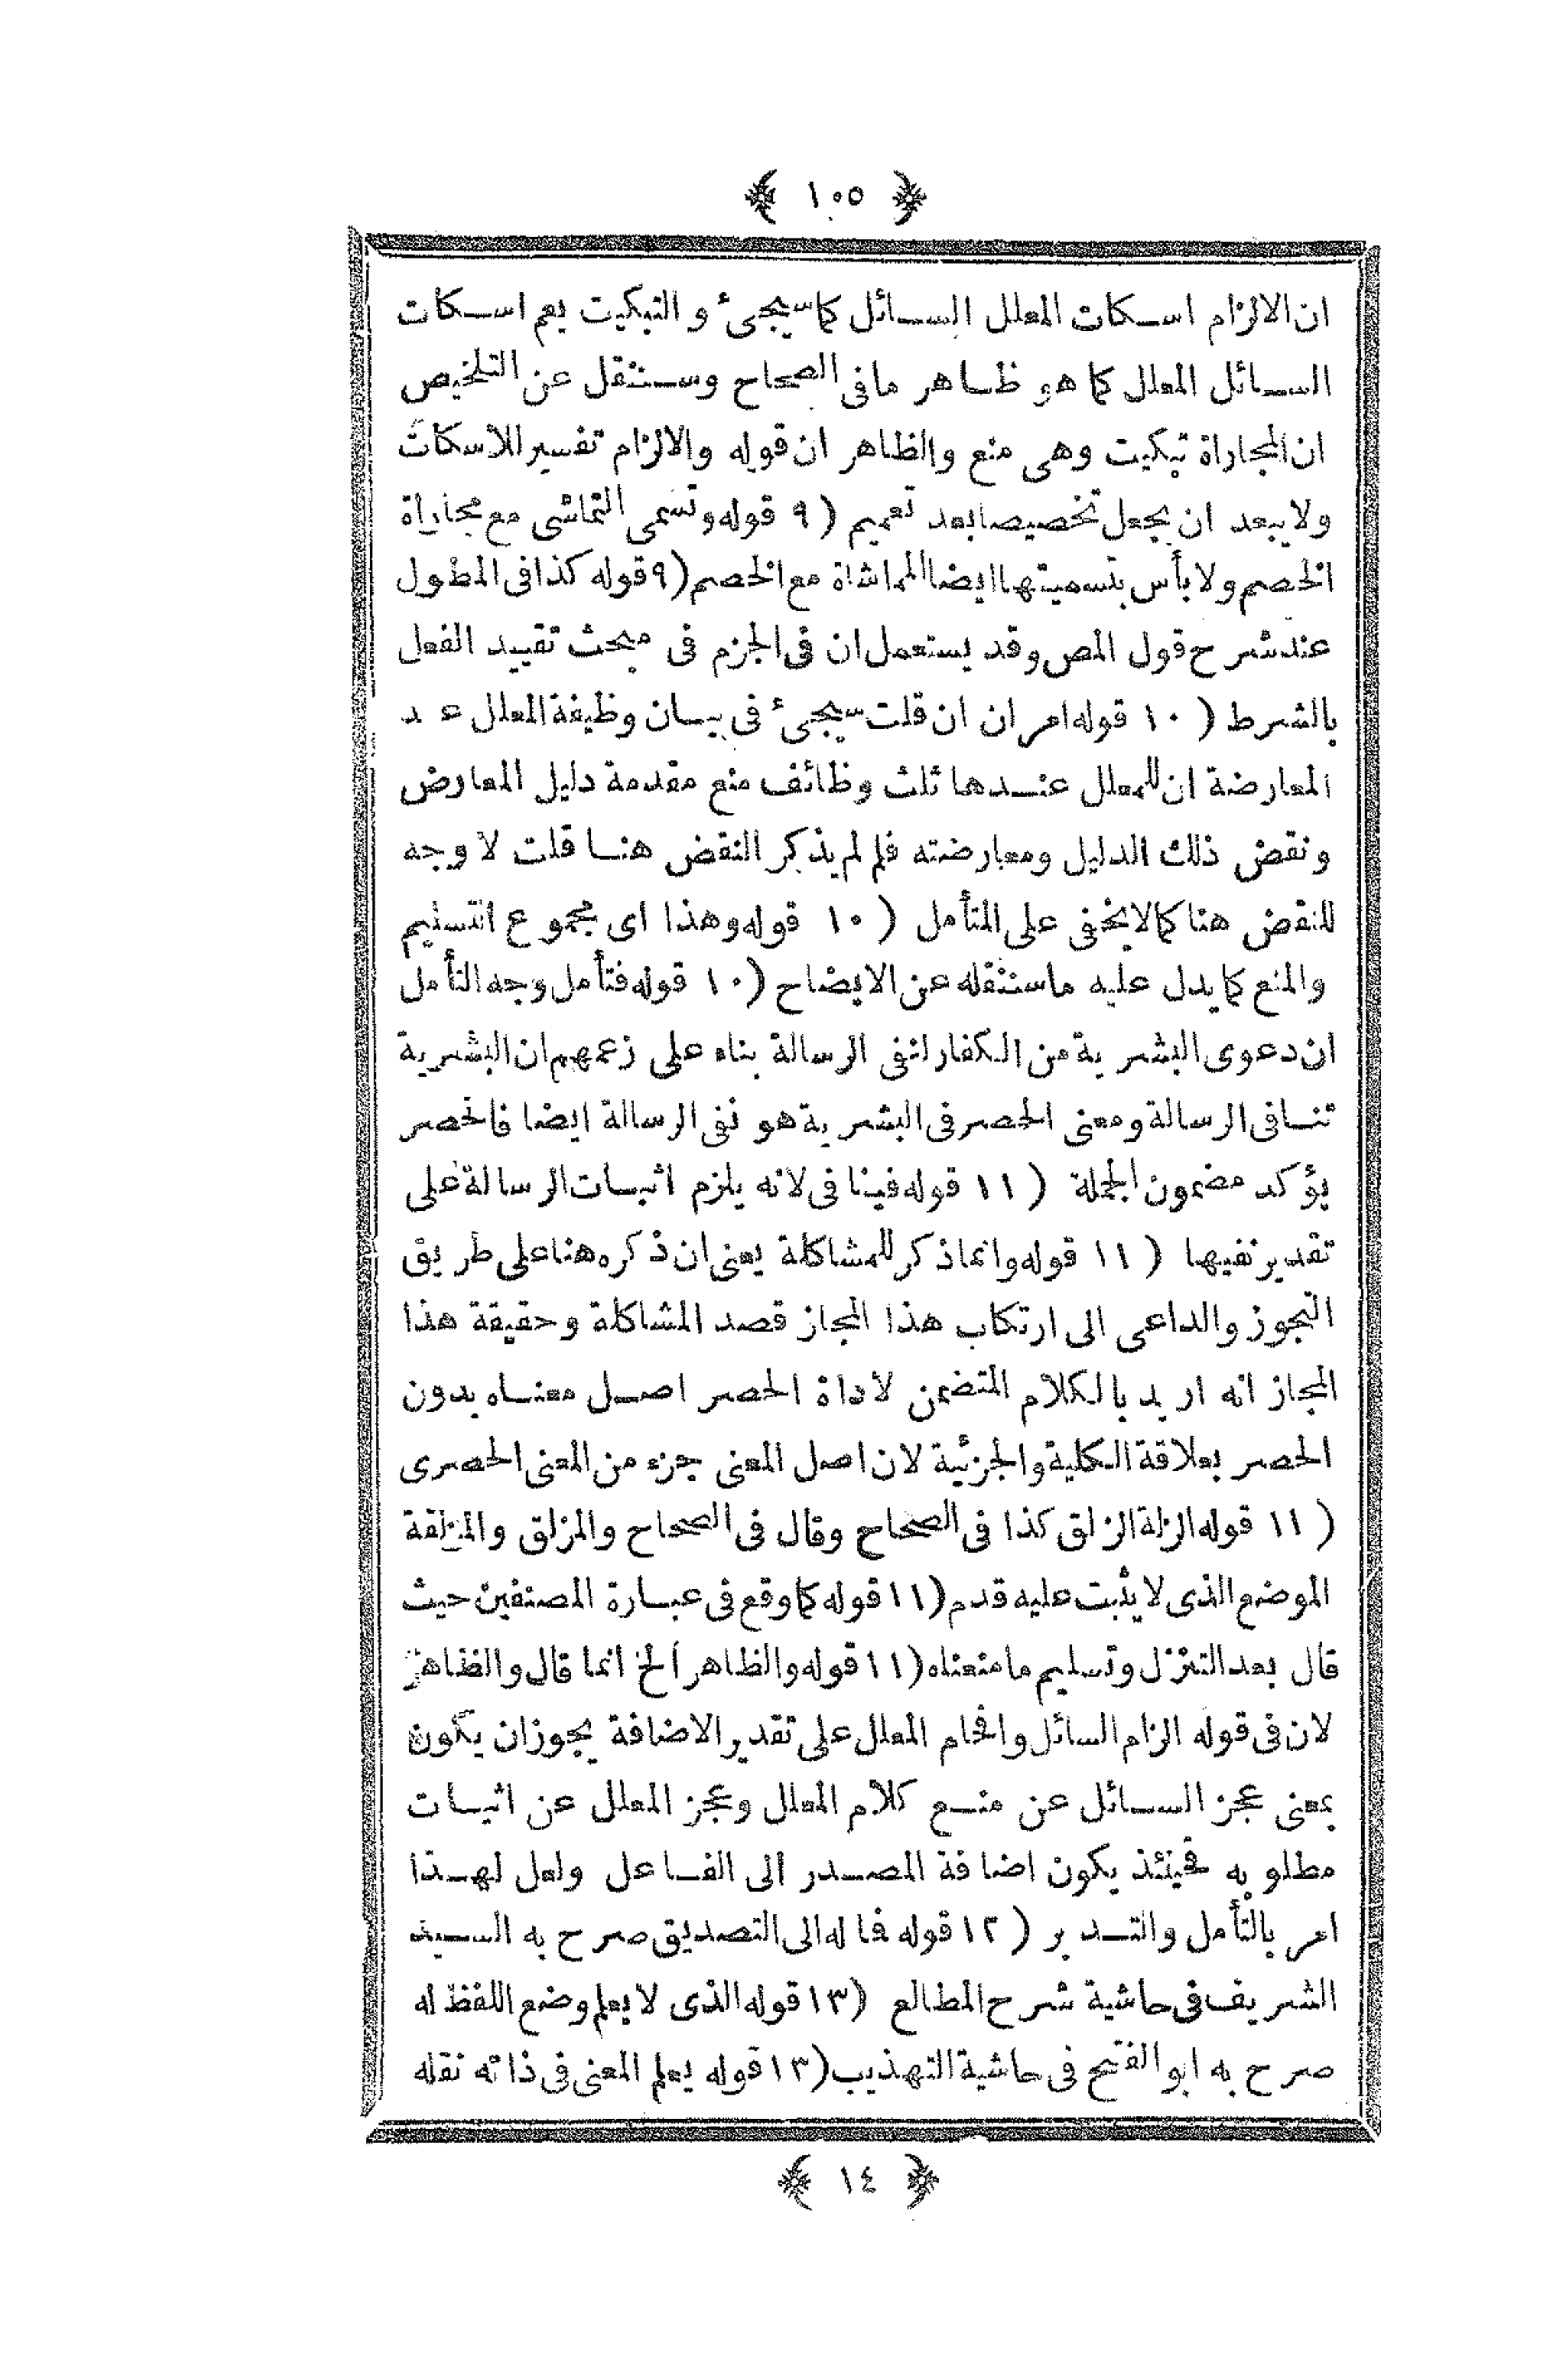 ﴿ ١٠٥ ﴾
ان الالزام اسكات المعلل السائل كما سيجئ و التبكيت يعم اسكات
السائل المعلل كما هو ظاهر ما فى الصحاح وسننقل عن التلخيص
ان المجاراة تبكيت وهى منع والظاهر ان قوله والالزام تفسير للاسكات
ولا يبعد ان يجعل تخصيصا بعد تعميم ( ٩ قوله وتسمى التماشى مع مجاراة
الخصم ولا بأس بتسميتها ايضا المماشاة مع الخصم ( ٩ قوله كذا فى المطول
عند شرح قول المص وقد يستعمل ان فى الجزم فى مبحث تقييد الفعل
بالشرط ( ١٠ قوله امر ان ان قلت سيجئ فى بيان وظيفة المعلل ع د
المعارضة ان للمعلل عندها ثلث وظائف منع مقدمة دليل المعارض
ونقض ذلك الدليل ومعارضته فلم لم يذكر النقض هنا قلت لا وجه
للنقض هنا كما لا يخفى على المتأمل ( ١٠ قوله وهذا اى مجموع التسليم
والمنع كما يدل عليه ما سننقله عن الايضاح ( ١٠ قوله فتأمل وجه التأمل
ان دعوى البشرية من الكفار لنفى الرسالة بناء على زعمهم ان البشرية
تنافى الرسالة ومعنى الحصر فى البشرية هو نفى الرسالة ايضا فالحصر
يؤكد مضمون الجملة ( ١١ قوله فينا فى لانه يلزم اثبات الرسالة على
تقدير نفيها ( ١١ قوله وانما ذكر للمشاكلة يعنى ان ذكره هنا على طريق
التجوز والداعى الى ارتكاب هذا المجاز قصد المشاكلة وحقيقة هذا
المجاز انه اريد بالكلام المتضمن لاداة الحصر اصل معناه بدون
الحصر بعلاقة الكلية والجزئية لان اصل المعنى جزء من المعنى الحصرى
( ١١ قوله الزلة الزلق كذا فى الصحاح وقال فى الصحاح والمزلق والمزلقة
الموضع الذى لا يثبت عليه قدم ( ١١ قوله كما وقع فى عبارة المصنفين حيث
قال بعد التنزل وتسليم ما منعناه ( ١١ قوله والظاهر الخ انما قال والظاهر
لان فى قوله الزام السائل وافحام المعلل على تقدير الاضافة يجوز ان يكون
بمعنى عجز السائل عن منع كلام المعلل وعجز المعلل عن اثبات
مطلوبه فحينئذ يكون اضافة المصدر الى الفاعل ولعل لهذا
امر بالتأمل والتدبر ( ١٢ قوله فاله الى التصديق صرح به السيد
الشريف فى حاشية شرح المطالع ( ١٣ قوله الذى لا يعلم وضع اللفظ له
صرح به ابو الفتح فى حاشية التهذيب ( ١٣ قوله يعلم المعنى فى ذاته نقله
﴿ ١٤ ﴾